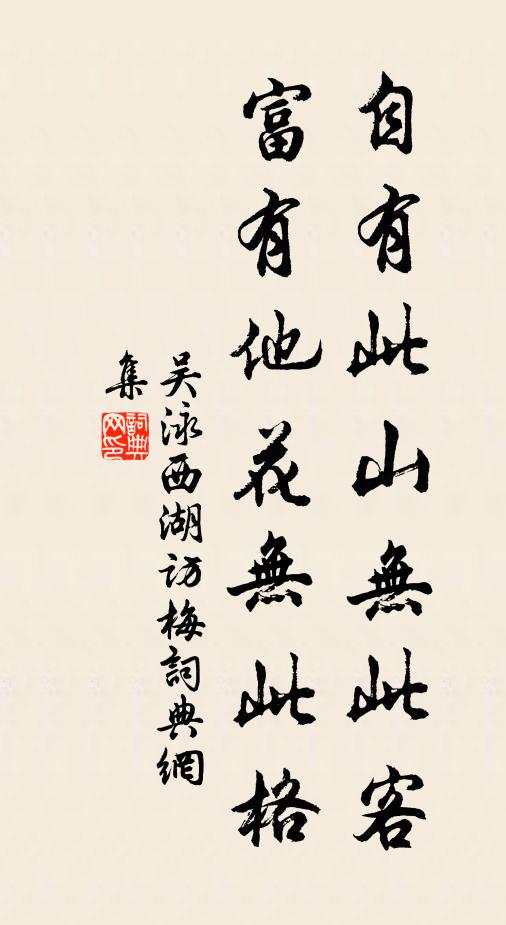 自有此山無此客
富有他花無此格
吴泳西湖访梅詞典網
集
詞典
网印